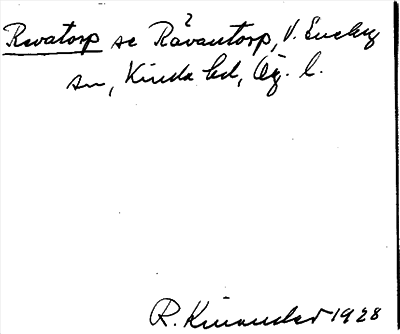 Revatorp se Råvantorp, V. Eneby
sn, Kinda hd, Ög. l.
R. Kinander 1928